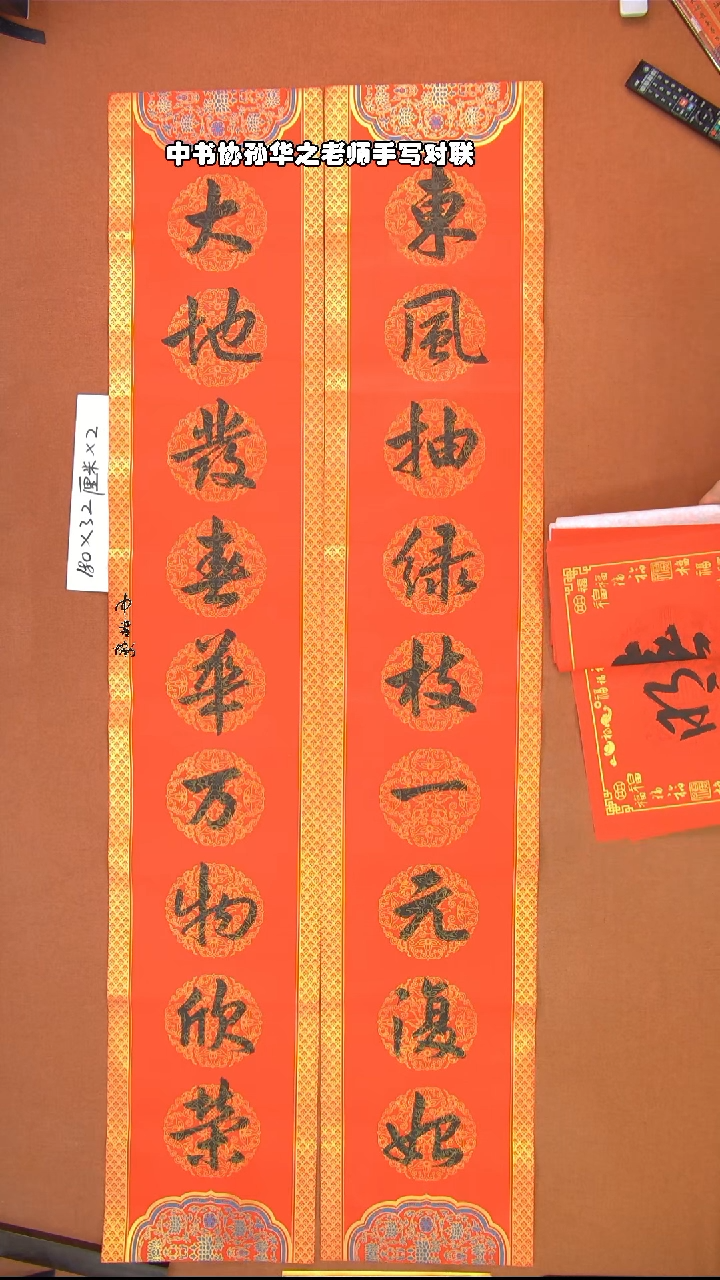 中书协孙华之老师手写对联
東風抽绿枝一元復始
大地發春華万物欣荣
180×32厘米×2